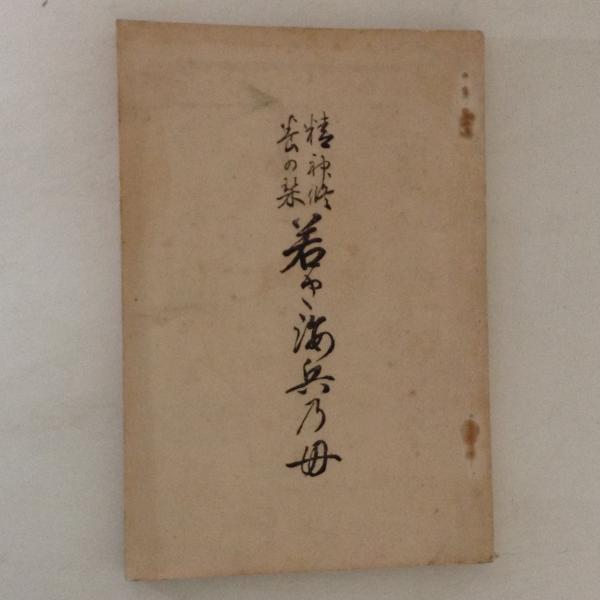 精神修
養の栞
若き海兵乃母